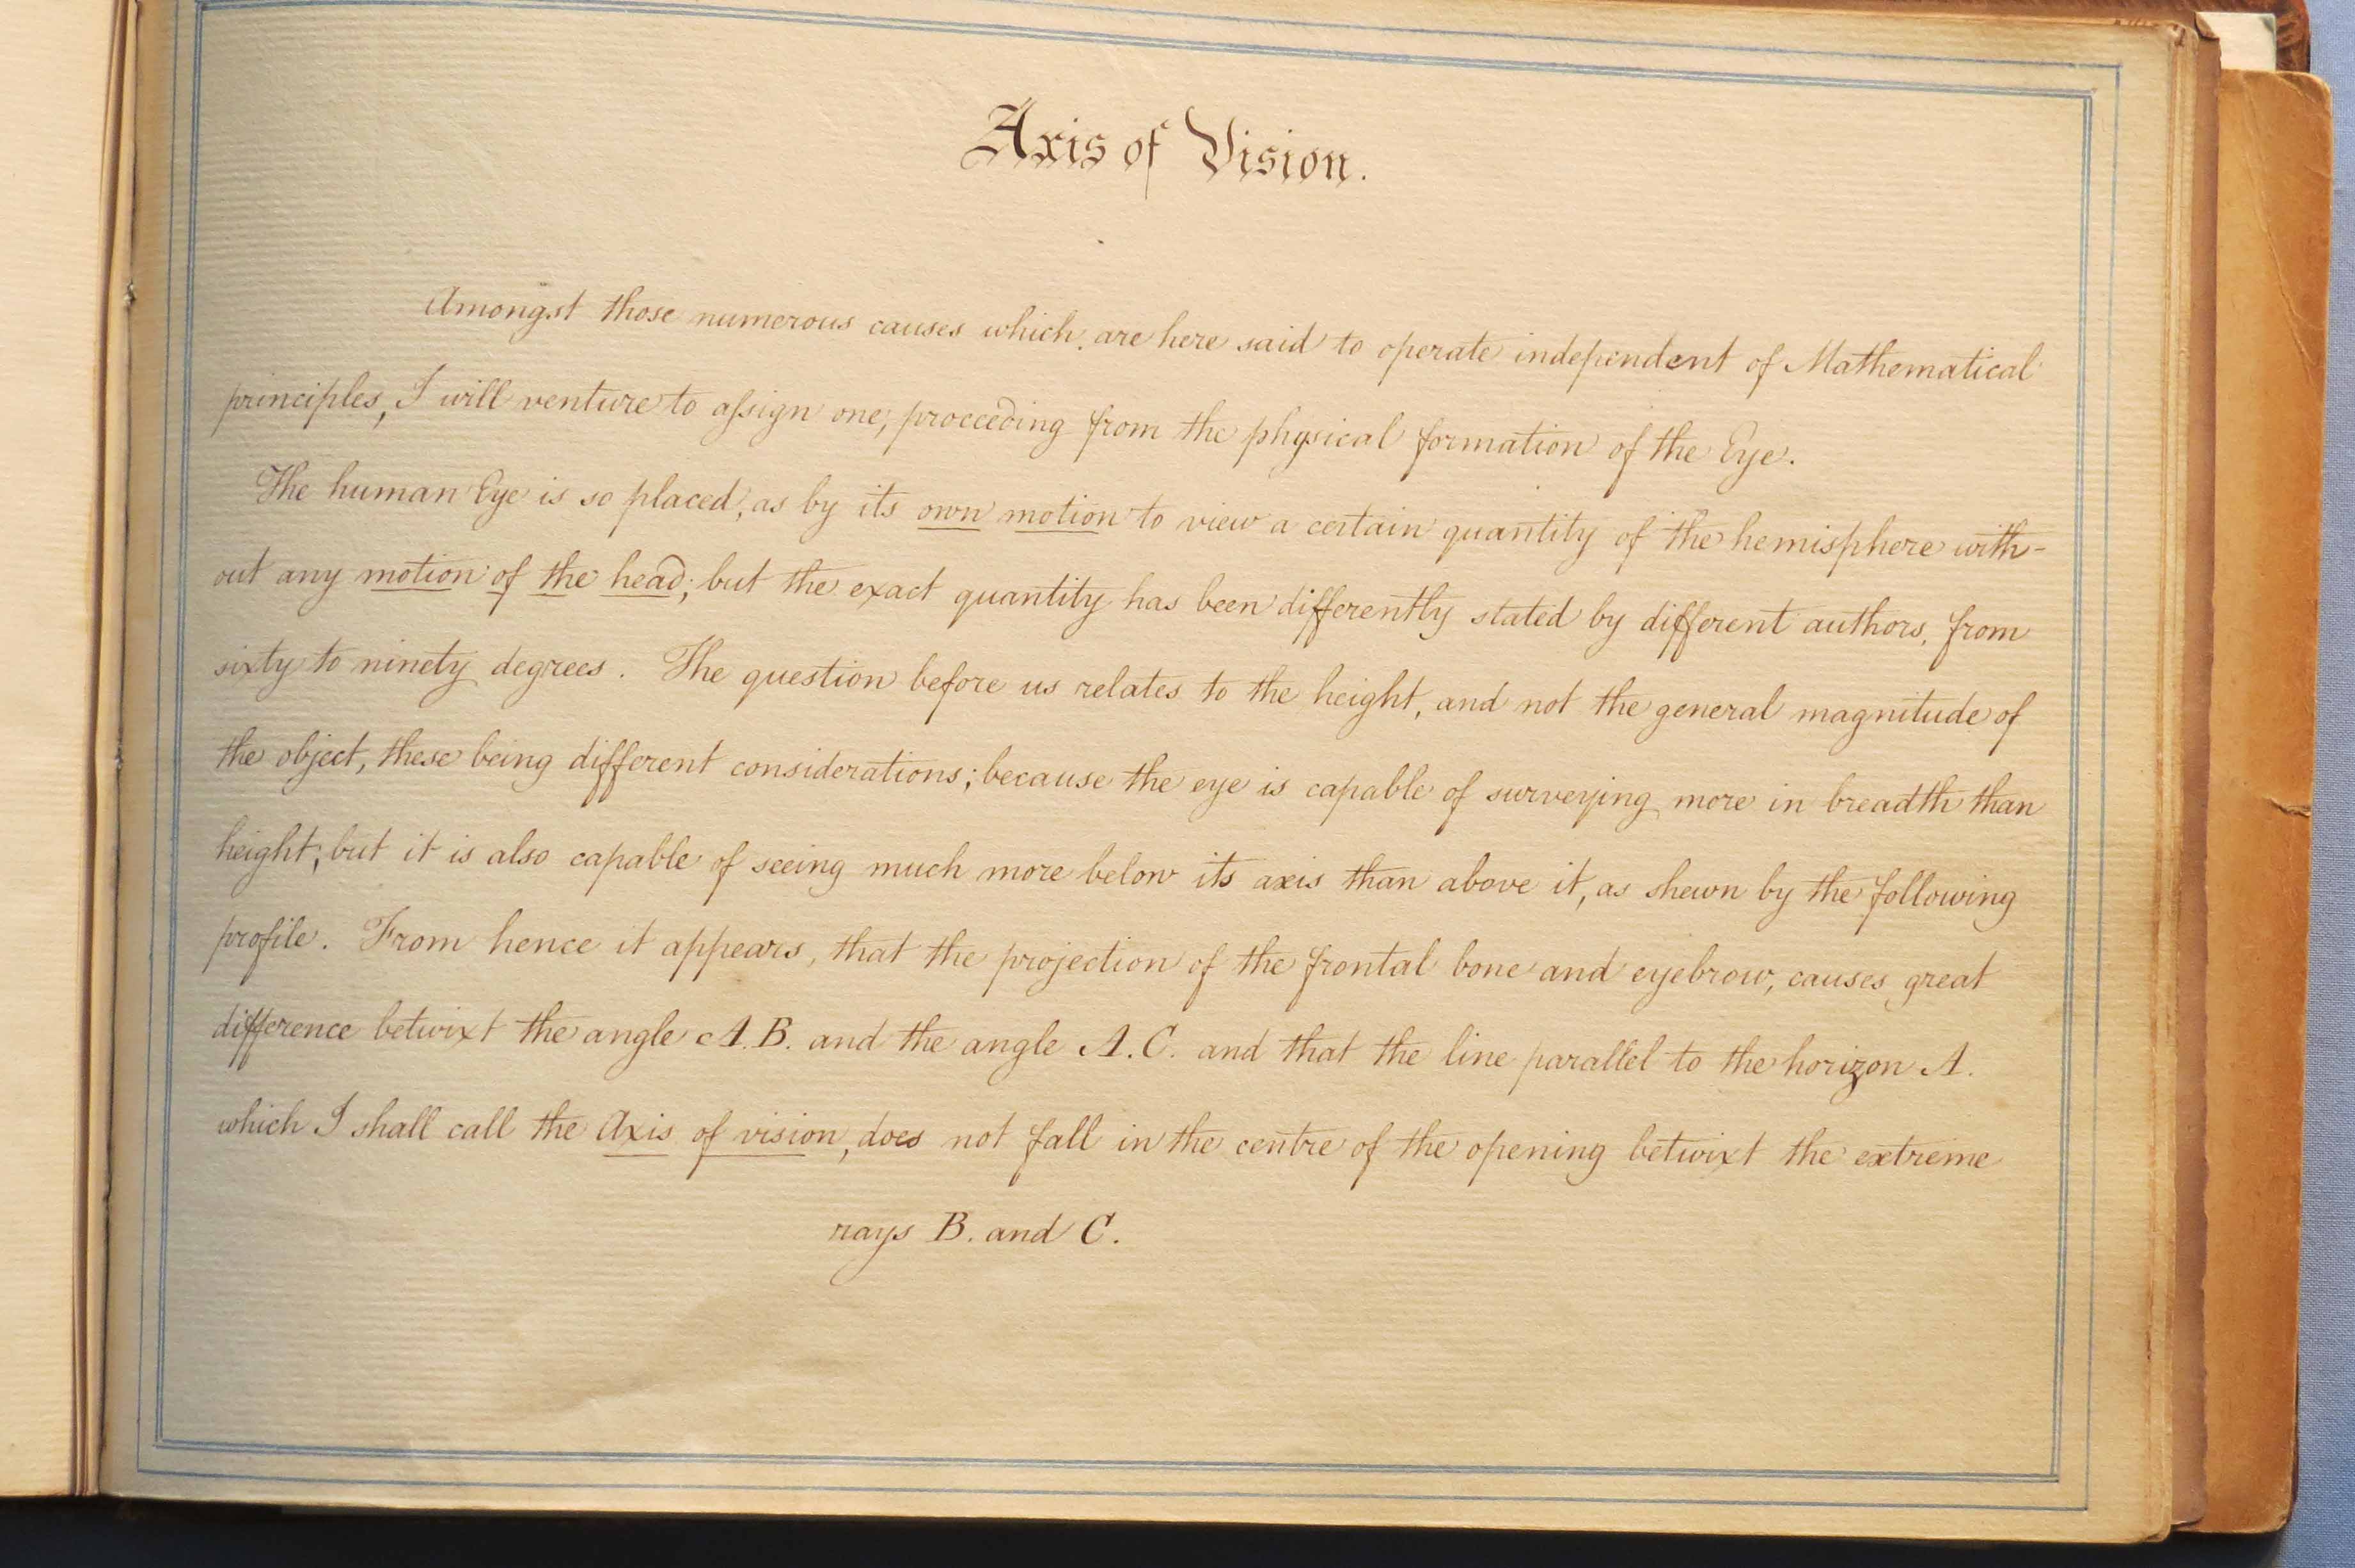 Axis of Vision.
Amongst those numerous causes which are here said to operate independent of Mathematical
principles, I will venture to aſsign one, proceeding from the physical formation of the Eye.
The human Eye is so placed, as by its own motion to view a certain quantity of the hemisphere with-
out any motion of the head; but the exact quantity has been differently stated by different authors, from
sixty to ninety degrees. The question before us relates to the height, and not the general magnitude of
the object, these being different considerations; because the eye is capable of surveying more in breadth than
height; but it is also capable of seeing much more below its axis than above it, as shewn by the following
profile. From hence it appears, that the projection of the frontal bone and eyebrow, causes great
difference betwixt the angle A.B. and the angle A.C. and that the line parallel to the horizon A.
which I shall call the Axis of vision, does not fall in the centre of the opening betwixt the extreme
rays B. and C.